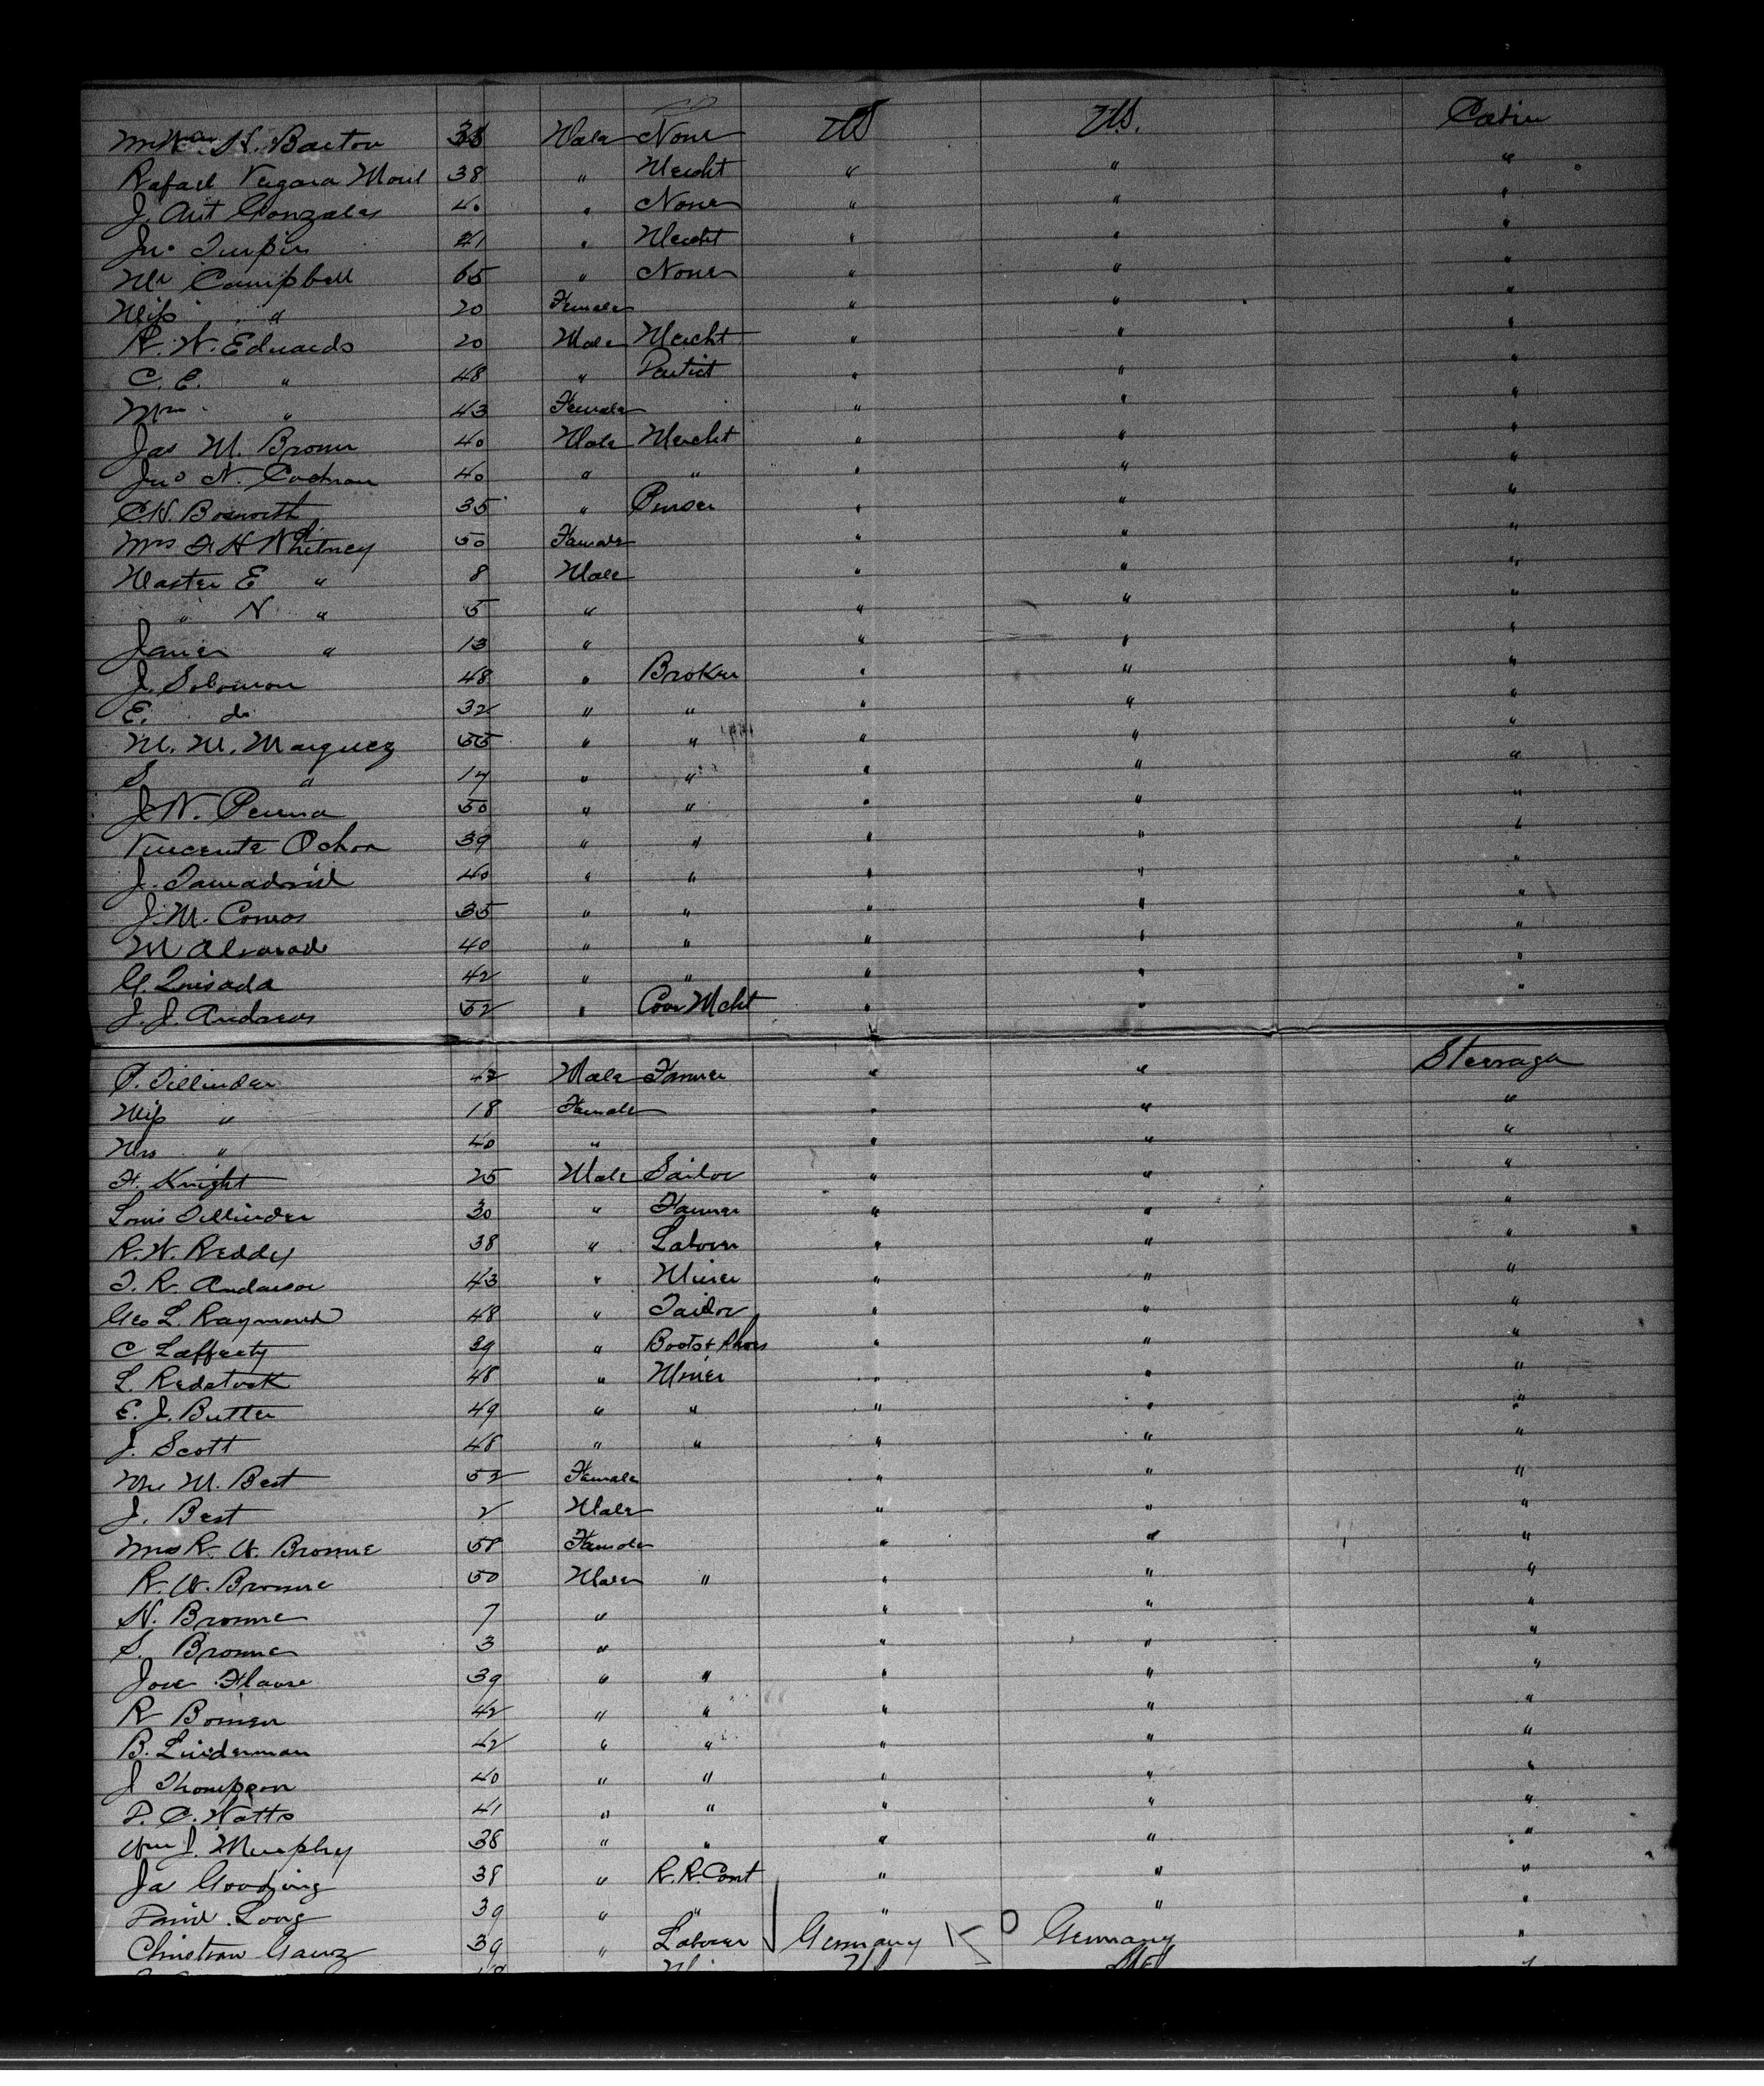 Mr Wm H. Barton 38 Male None US U.S. Cabin
Rafael Vergara 38 " Mercht " " "
J. Ant Gonzales 40 " None " " "
Jno Turpin 41 " Mercht " " "
Mr Campbell 65 " None " " "
Miss " 20 Female " " "
R. W. Edwards 20 Male Mercht " " "
C. E. " 48 " Dentist " " "
Mrs " 43 Female " " "
Jas M. Brown 40 Male Mercht " " "
Jno N. Cochran 40 " " " " "
C.H. Bosworth 35 " Purser " " "
Mrs F H Whitney 50 Female " " "
Master E " 8 Male " " "
" N " 5 " " " "
James " 13 " " " "
J. Solomon 48 " Broker " " "
E. do 32 " " " " "
M. M. Marquez 55 " " " " "
S " 17 " " " " "
J.N. 50 " " " " "
Vincente Ochoa 39 " " " " "
J. 40 " " " " "
J.M. Comos 35 " " " " "
M Alvarado 40 " " " " "
G. Quisada 42 " " " " "
J. J. Andrews 52 " Com Mcht " " "
P. Tillinder 42 Male Farmer " " Steerage
Miss " 18 Female " " "
Mrs " 40 " " " "
H. Knight 25 Male Sailor " " "
Louis Tillinder 30 " Farmer " " "
R. W. Reddy 38 " Laborer " " "
T. R. Anderson 43 " Miner " " "
Geo L. Raymond 48 " Tailor " " "
C Lafferty 39 " Boots & Shoes " " "
L. Redstock 48 " Miner " " "
E. J. Butter 49 " " " " "
J. Scott 48 " " " " "
Mrs M. Best 52 Female " " "
J. Best 2 Male " " "
Mrs R. W. Browne 58 Female " " "
R. W. Browne 50 Male " " " "
N. Browne 7 " " " "
S. Browne 3 " " " "
Jose 39 " " " " "
R Bowen 42 " " " " "
B. Linderman 42 " " " " "
J Thompson 40 " " " " "
P. C. Watts 41 " " " " "
Wm J. Murphy 38 " " " " "
Ja Gooding 38 " R.R. Cont " " "
David Long 39 " " " " "
Christian Ganz 39 " Laborer Germany Germany "